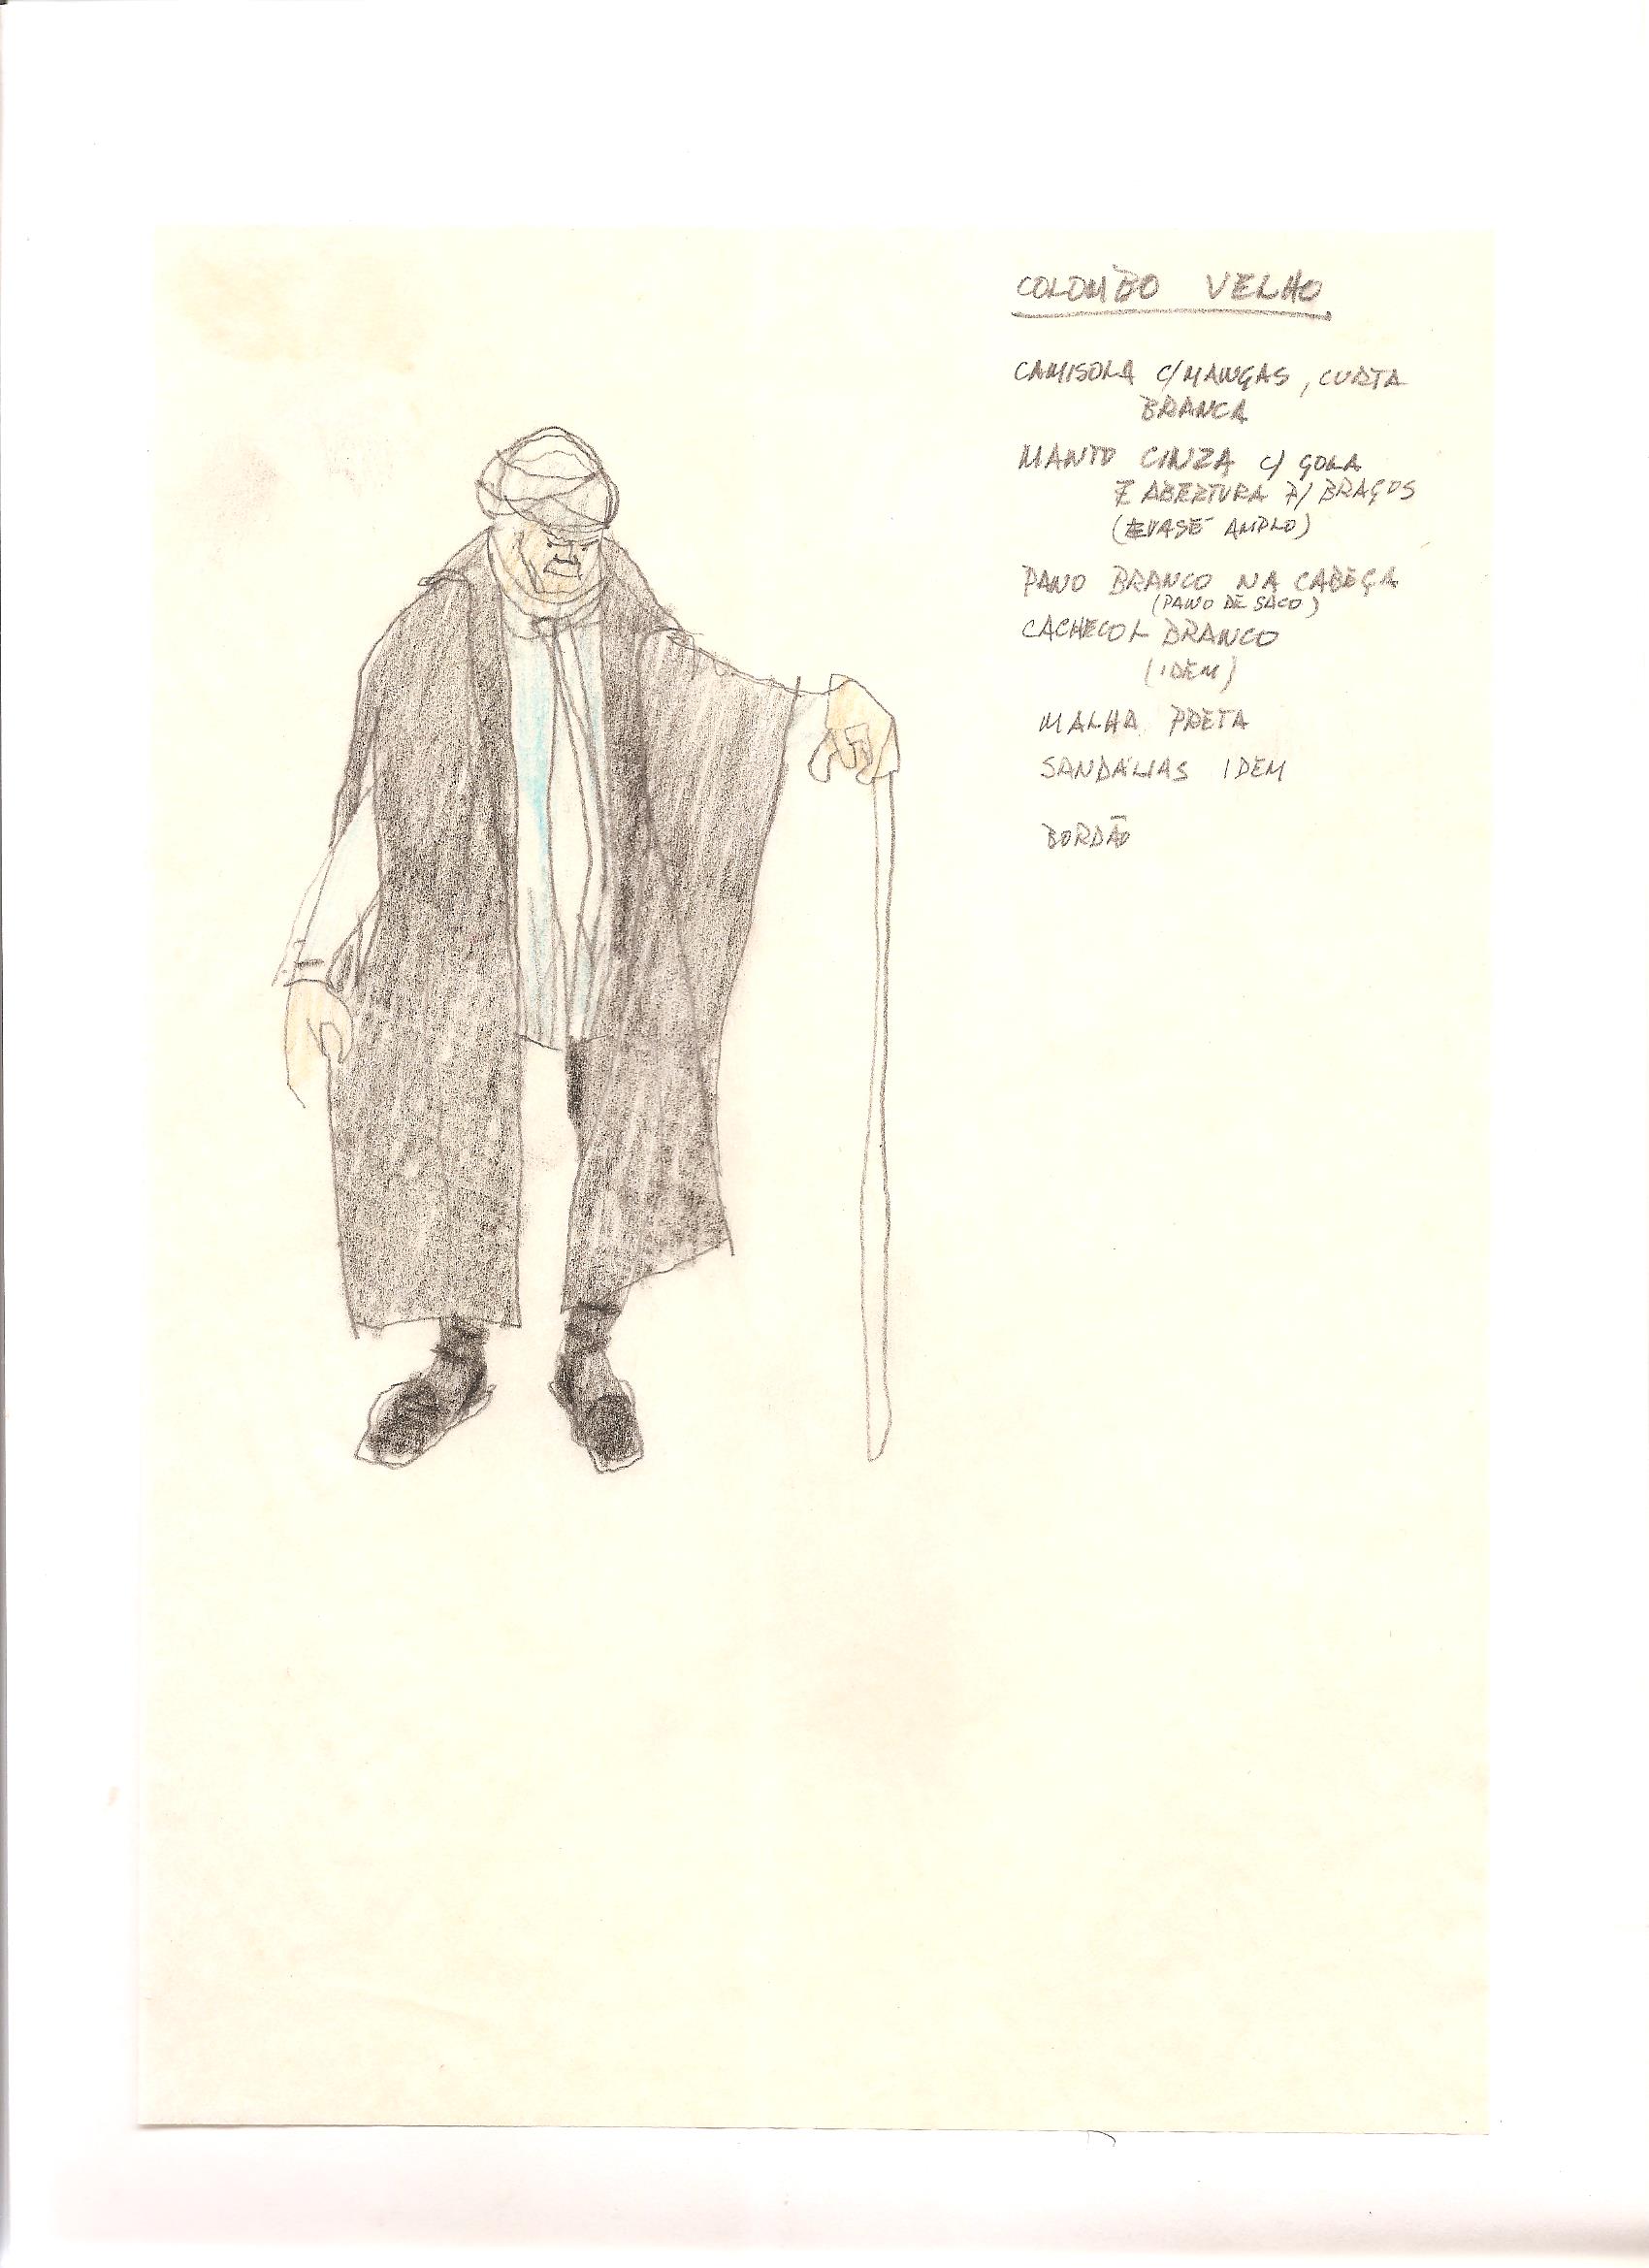 COLOMBO VELHO
CAMISOLA C/MANGAS, CURTA
BRANCA
MANTO CINZA C/ GOLA
E ABERTURA P/ BRAÇOS
(EVASÉ AMPLO)
PANO BRANCO NA CABEÇA
(PANO DE SACO)
CACHECOL BRANCO
(IDEM)
MALHA PRETA
SANDÁLIAS IDEM
BORDÃO